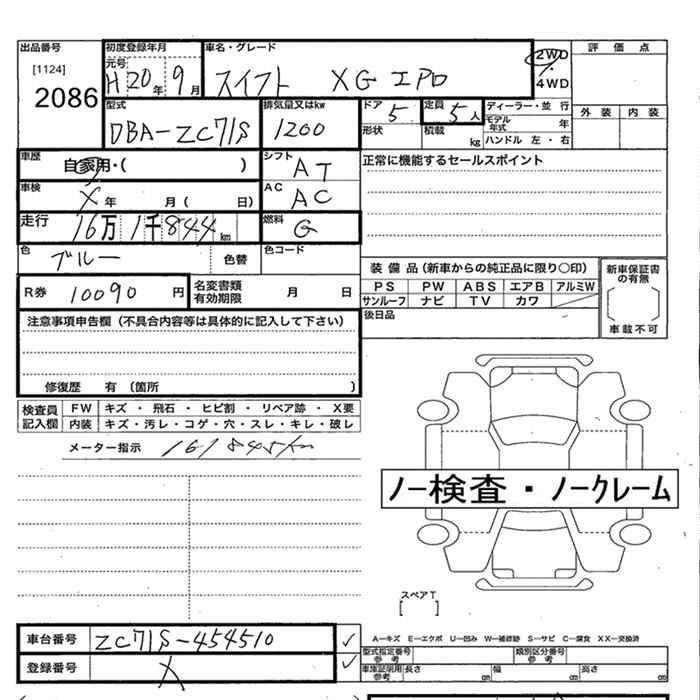 出品番号 初度登録年月 車名・グレード 評価点
[1124] 元号 2WD
2086 H20年 9月 スイフト XG 4WD
型式 排気量又はkw ドア 定員 ディーラー・並行 外装 内装
DBA-ZC71S 1200 5 5人 モデル年式 年
形状 積載 kg ハンドル 左・右
車歴 自家用・( ) シフト AT 正常に機能するセールスポイント
車検 X年 月( 日) AC AC
走行 16万1千844km 燃料 G
色 ブルー 色替 色コード
装備品(新車からの純正品に限り○印) 新車保証書の有無
R券 10090円 名変書類有効期限 月 日 PS PW ABS エアB アルミW
サンルーフ ナビ TV カワ
注意事項申告欄(不具合内容等は具体的に記入して下さい) 後日品 車載不可
修復歴 有(箇所 )
検査員記入欄 FW キズ・飛石・ヒビ割・リペア跡・X要
内装 キズ・汚レ・コゲ・穴・スレ・キレ・破レ
メーター指示 161845km
ノー検査・ノークレーム
スペアT
[ ]
車台番号 ZC71S-454510 ✓ A―キズ E―エクボ U―凹み W―補修跡 S―サビ C―腐食 XX―交換済
型式指定番号参考 類別区分番号参考
登録番号 X ✓ 車庫証明用参考 長さ cm 幅 cm 高さ cm